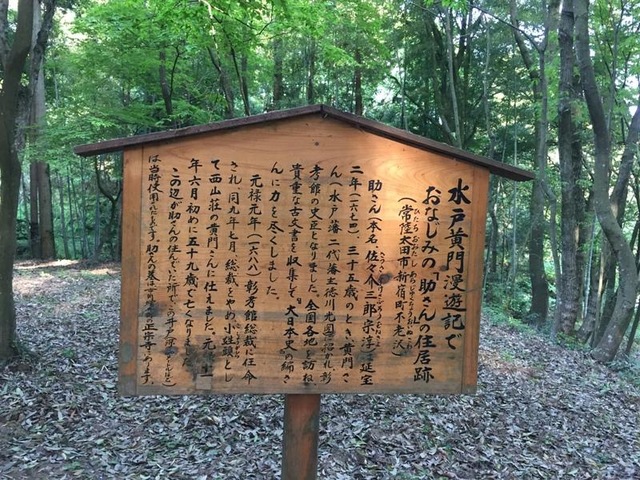 水戸黄門漫遊記で
おなじみの「助さんの住居跡
(常陸太田市新宿町不老沢)
助さん(本名、佐々介三郎宗淳)は延宝
二年(一六七四)三十五歳のとき、黄門さ
ん(水戸藩二代藩主徳川光圀)に招かれ彰
考館の史臣となりました。全国各地を訪ね
貴重な古文書を収集して「大日本史」の編さ
んに力を尽くしました。
元禄元年(一六八八)彰考館総裁に任命
され、同九年七月、総裁をやめ小姓頭とし
て西山荘の黄門さんに仕えました。元禄十一
年六月初めに五十九歳で亡くなりました。
この辺が助さんの住んでいた所で
は当時使用したものです。助さんの墓は
正宗寺にあります。